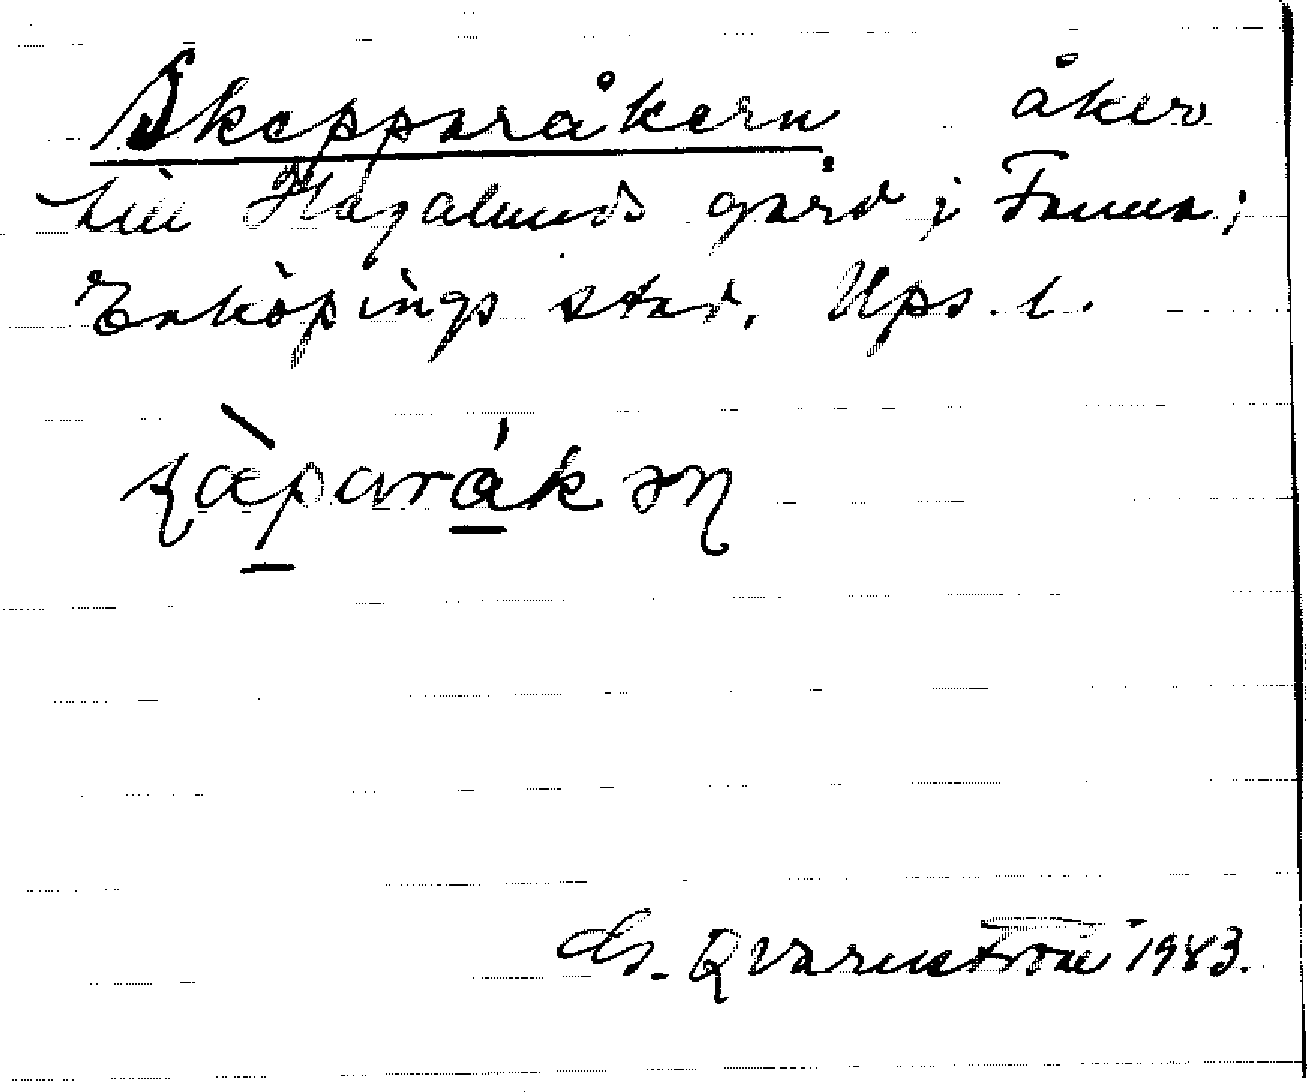 Skepparåkern åker
till Hagalunds gård i Fanna;
Enköpings stad, Ups. l.
Qvarnström 1983.